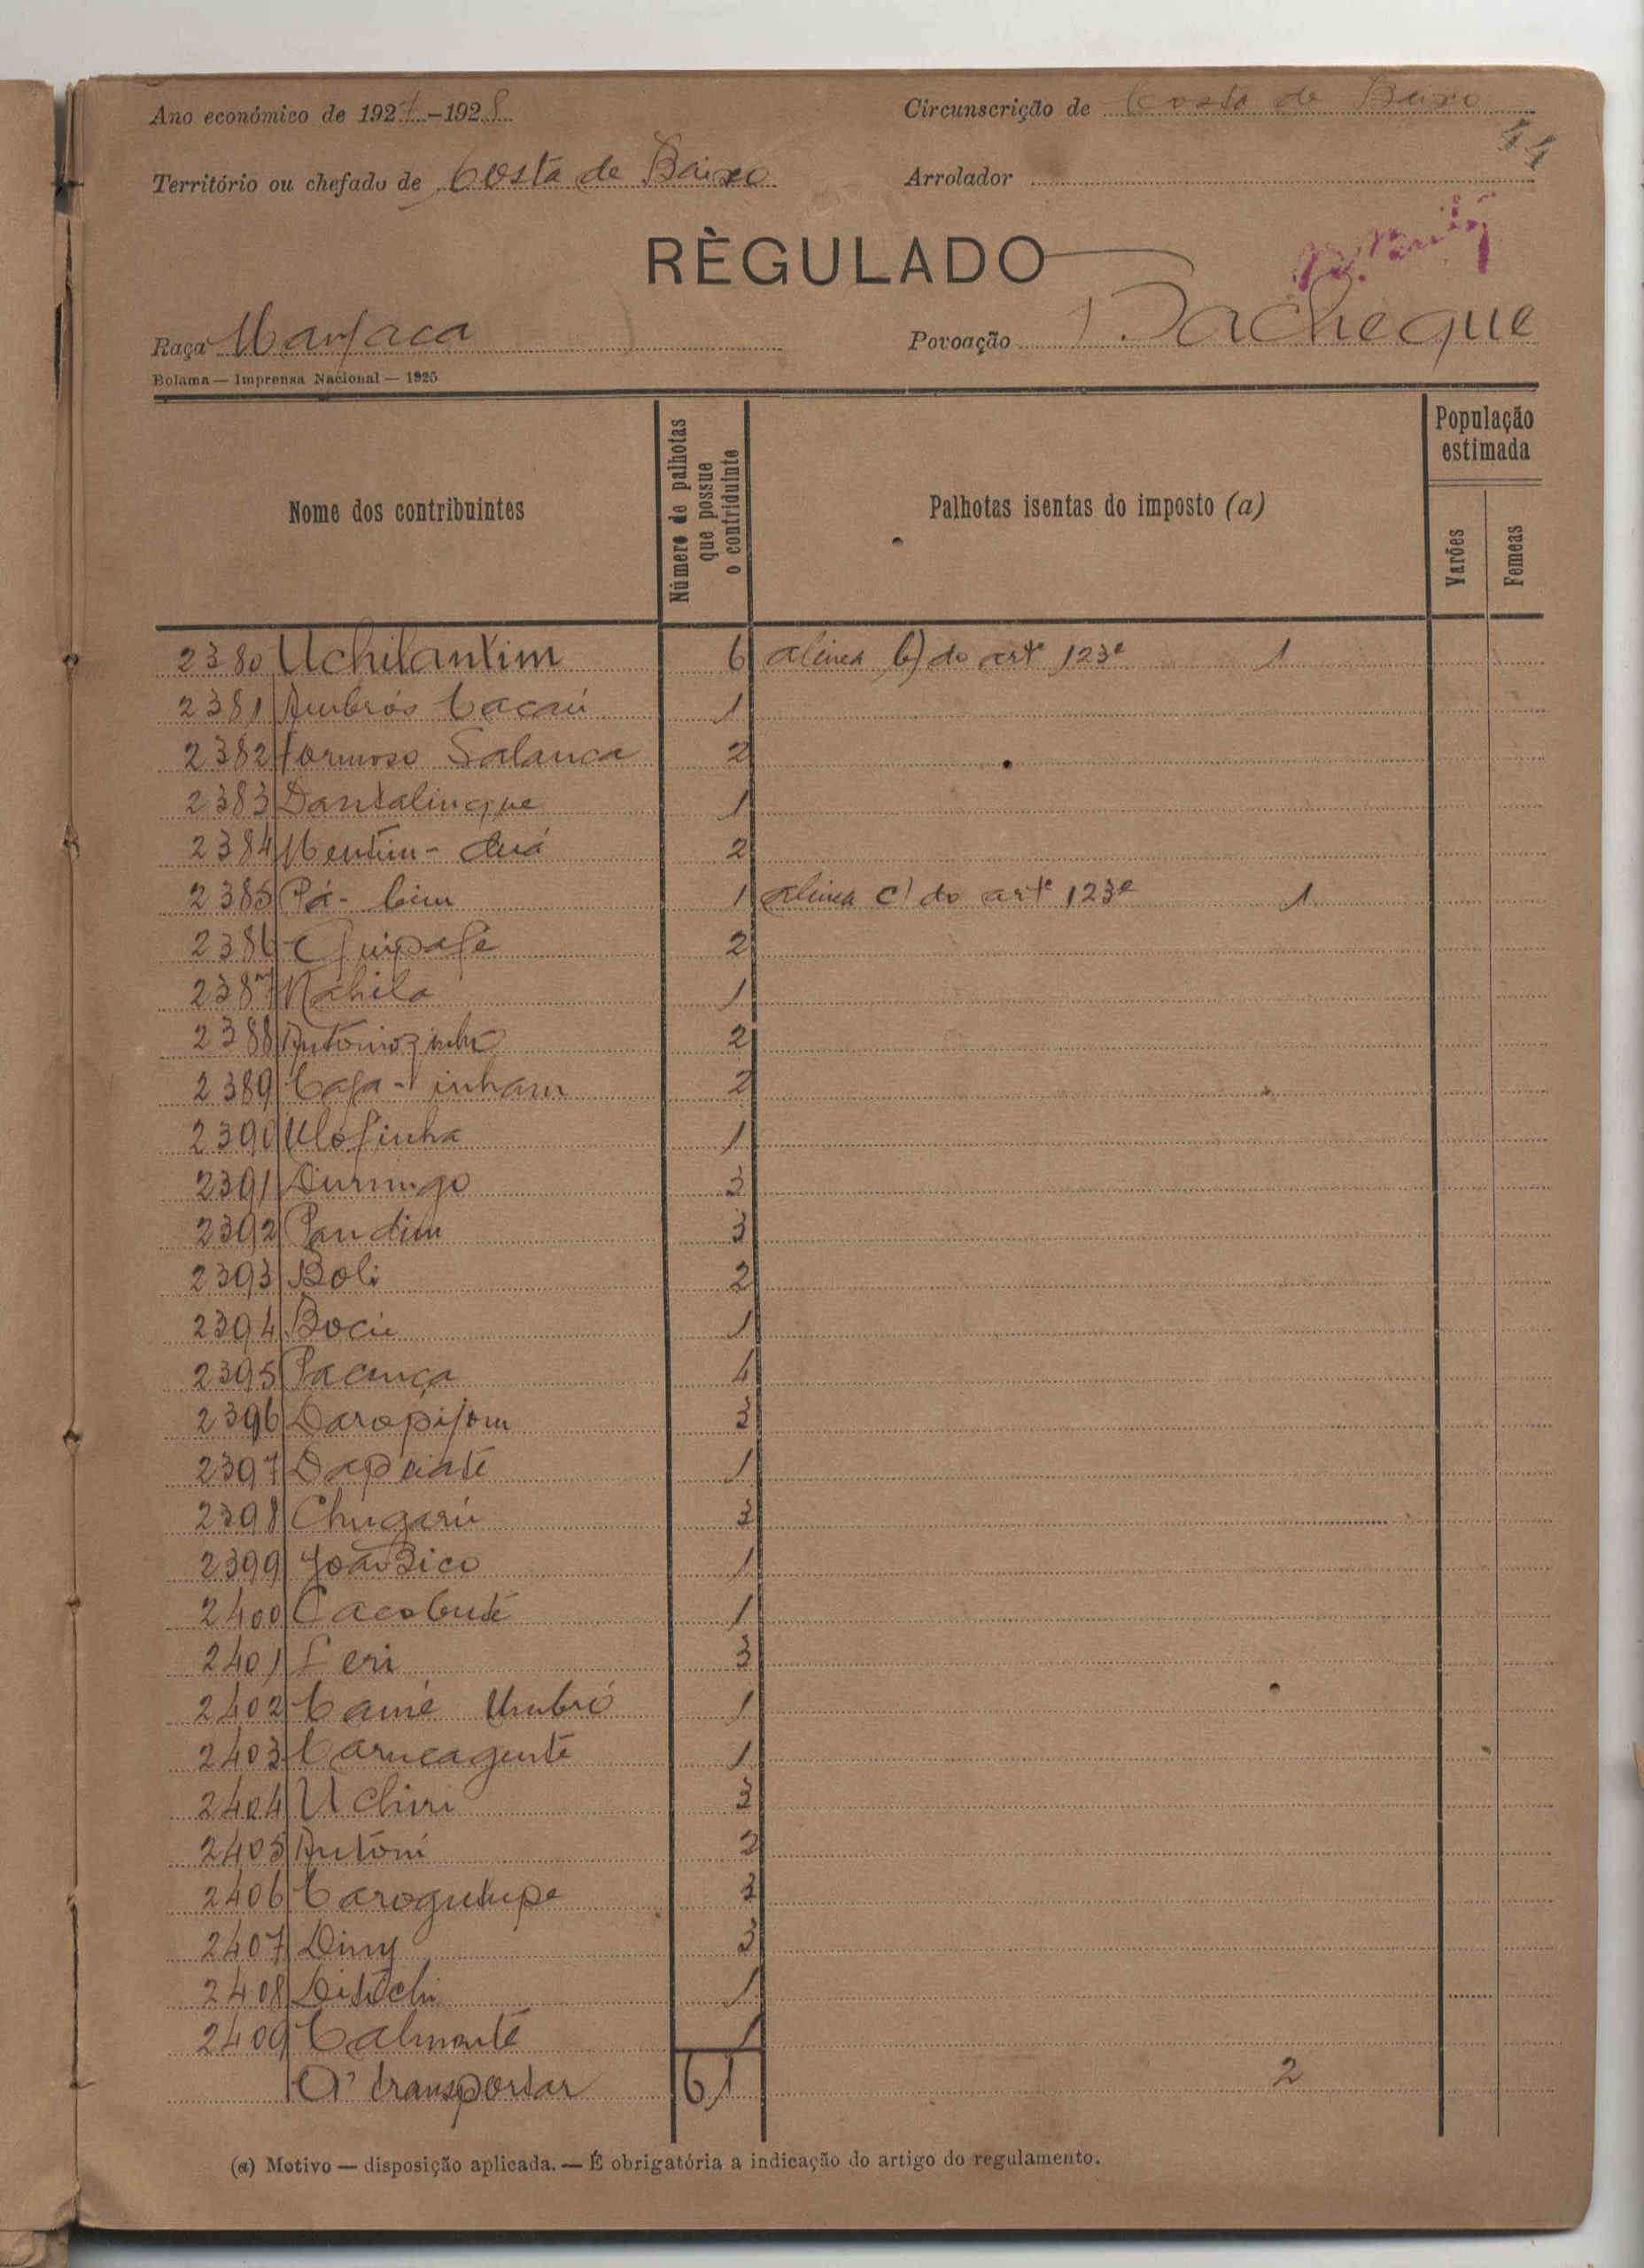 Ano económico de 1927-1928
Circunscrição de Costa de Baixo
44
Território ou chefado de Costa de Baixo
Arrolador
RÈGULADO
Raça Manjaca
Povoação Pacheque
Bolama — Imprensa Nacional — 1925
Nome dos contribuintes
Número de palhotas que possue o contriduinte
Palhotas isentas do imposto (a)
População estimada
Varões
Femeas
2380 Uchilantim 6 alinea b) do artº 123º 1
2381 Ambrós Cacaú 1
2382 Formoso Salanca 2
2383 Dantalinque 1
2384 Mentim- duá 2
2385 Pá- bim 1 alinea c) do artº 123º 1
2386 Quipafé 2
2387 Nahila 1
2388 Antóniozinho 2
2389 Cafa- inham 2
2390 Ulófinha 1
2391 Durmingo 3
2392 Pandim 3
2393 Boli 2
2394 Bocú 1
2395 Pacança 4
2396 Daropijom 3
2397 1
2398 Chugarú 3
2399 João Bico 1
2400 Cacobuté 1
2401 Feri 3
2402 Camé Umbró 1
2403 Carucagenté 1
2404 Uchiri 3
2405 Antóni 2
2406 Carogutupe 3
2407 Diny 3
2408 Ditóchi 1
2409 Calmonté 1
A' transportar 61 2
(a) Motivo — disposição aplicada. — É obrigatória a indicação do artigo do regulamento.